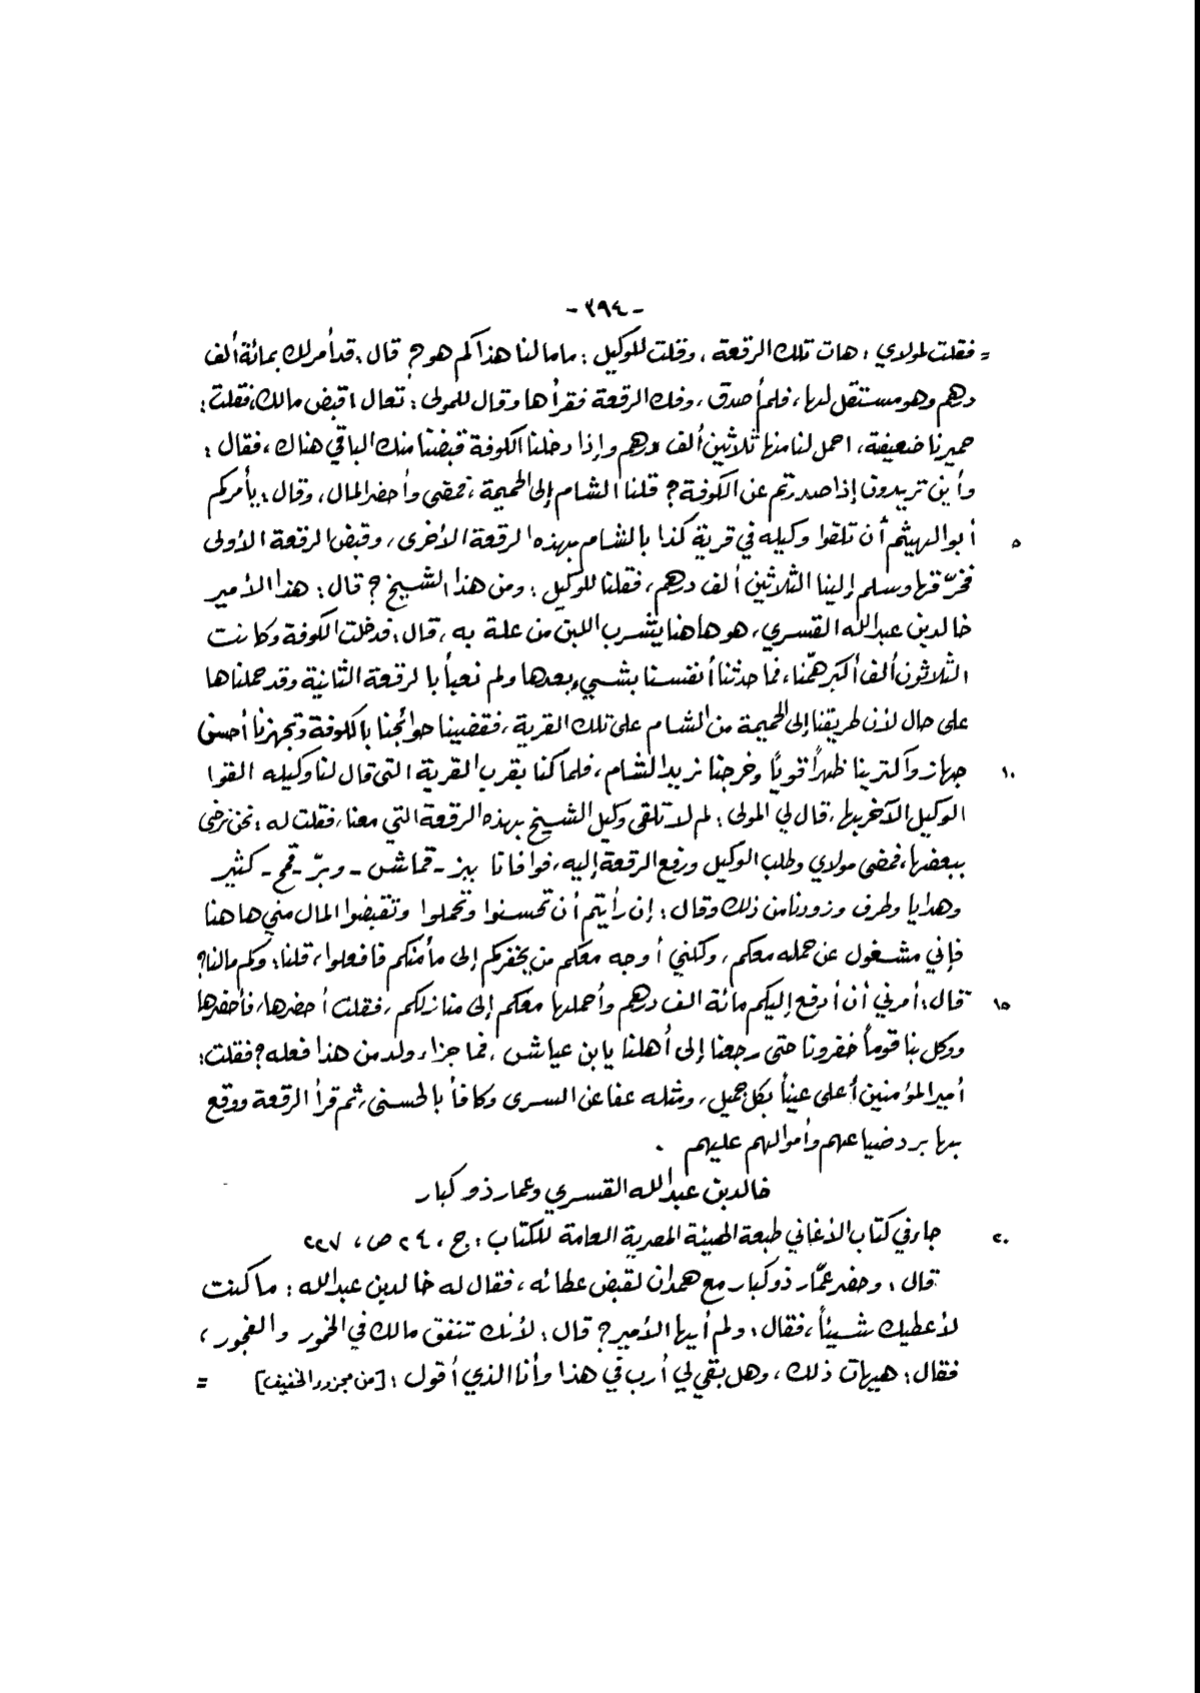 - ٣٩٤ -
= فقلت لمولاي : هات تلك الرقعة ، وقلت للوكيل : ما مالنا هذا كم هو ؟ قال : قد أمر لك بمائة ألف
درهم وهو مستقل لها ، فلم أصدق ، وفك الرقعة فقرأها وقال للمولى : تعال اقبض مالك ، فقلت :
حميرنا ضعيفة ، احمل لنا منها ثلاثين ألف درهم وإذا دخلنا الكوفة قبضنا منك الباقي هناك ، فقال :
وأين تريدون إذا صدرتم عن الكوفة ؟ قلنا الشام إلى الحميمة ، فمضى وأحضر المال ، وقال : يأمركم
أبو الهيثم أن تلقوا وكيله في قرية كذا بالشام بهذه الرقعة الأخرى ، وقبض الرقعة الأولى ٥
فخرّقها وسلم إلينا الثلاثين ألف درهم ، فقلنا للوكيل : ومن هذا الشيخ ؟ قال : هذا الأمير
خالد بن عبد الله القسري ، هو هاهنا يتشرب اللبن من علة به ، قال : فدخلت الكوفة وكانت
الثلاثون ألف أكبر همّنا ، فما حدثنا أنفسنا بشيء بعدها ولم نعبأ بالرقعة الثانية وقد حملناها
على حال لأن طريقنا إلى الحميمة من الشام على تلك القرية ، فقضينا حوائجنا بالكوفة وتجهزنا أحسن
جهاز وآكترينا ظهراً قوياً وخرجنا نريد الشام ، فلما كنا بقرب القرية التى قال لنا وكيله القوا ١٠
الوكيل الآخر بها ، قال لي المولى : لم لا تلقى وكيل الشيخ بهذه الرقعة التي معنا ، فقلت له : نحن نرضى
ببعضها ، فمضى مولاي وطلب الوكيل ورفع الرقعة إليه ، فوافانا ببز - قماش - وبرّ - قمح - كثير
وهدايا وطرف وزودنا من ذلك وقال : إن رأيتم أن تحسنوا وتجملوا وتقبضوا المال مني هاهنا
فإني مشغول عن حمله معكم ، ولكني أوجه معكم من يخفركم إلى مأمنكم فافعلوا ، قلنا : وكم مالنا ؟
قال : أمرني أن أدفع إليكم مائة الف درهم وأحملها معكم إلى منازلكم ، فقلت أحضرها ، فأحضرها ١٥
ووكل بنا قوماً خفرونا حتى رجعنا إلى أهلنا يا بن عياش ، فما جزاء ولد من هذا فعله ؟ فقلت :
أمير المؤمنين أعلى عيناً بكل جميل ، ومثله عفا عن السرى وكافأ بالحسنى ، ثم قرأ الرقعة ووقع
بها برد ضياعهم وأموالهم عليهم .
خالد بن عبد الله القسري وعمار ذو كبار
جاء في كتاب الأغاني طبعة الهيئة المصرية العامة للكتاب : ج ، ٢٤ ص ، ٢٢٧ ٢٠
قال : وحضر عمّار ذو كبار مع همدان لقبض عطائه ، فقال له خالد بن عبد الله : ما كنت
لأعطيك شيئاً ، فقال : ولم أيها الأمير ؟ قال : لأنك تنفق مالك في الخمور والفجور ،
فقال : هيهات ذلك ، وهل بقي لي أرب في هذا وأنا الذي أقول : [ من مجزوء الخفيف ] =